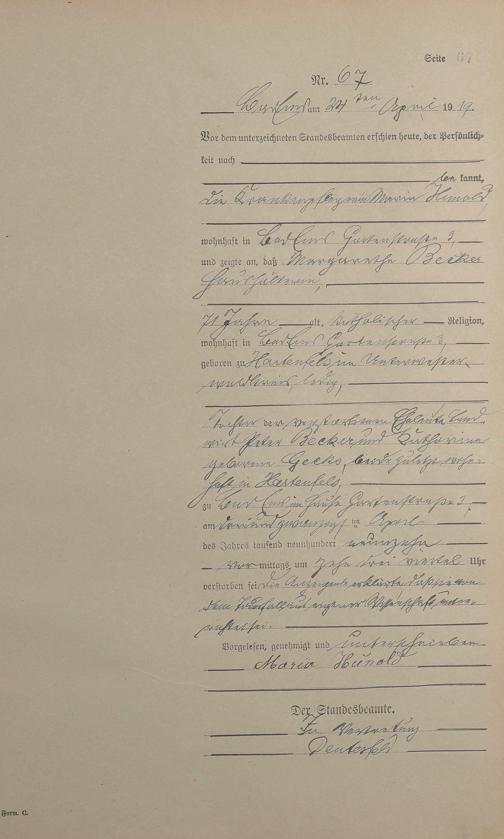 Seite 67
Nr. 67
Bad Ems am 24 ten April 1919.
Vor dem unterzeichneten Standesbeamten erschien heute, der Persönlich-
keit nach
be kannt,
die Krankenpflegerin Maria Hunold
wohnhaft in Bad Ems Gartenstraße 3,
und zeigte an, daß Margarethe Becker
Haushälterin,
71 Jahre alt, katholischer Religion,
wohnhaft in Bad Ems Gartenstraße 3,
geboren zu Hartenfels im Unterwester-
waldkreis, ledig,
Tochter der verstorbenen Eheleute Land-
wirt Peter Becker und Katharina
geborene Gecks, beide zuletzt wohn-
haft in Hartenfels,
zu Bad Ems im Hause Gartenstraße 3,
am dreiundzwanzigsten April
des Jahres tausend neunhundert neunzehn
Vor mittags um zehn drei viertel Uhr
verstorben sei. Die Anzeigende erklärte daß sie von
dem Todesfall aus eigener Wissenschaft unter-
richtet sei.
Vorgelesen, genehmigt und unterschrieben
Maria Hunold
Der Standesbeamte.
In Vertretung
Form. C.